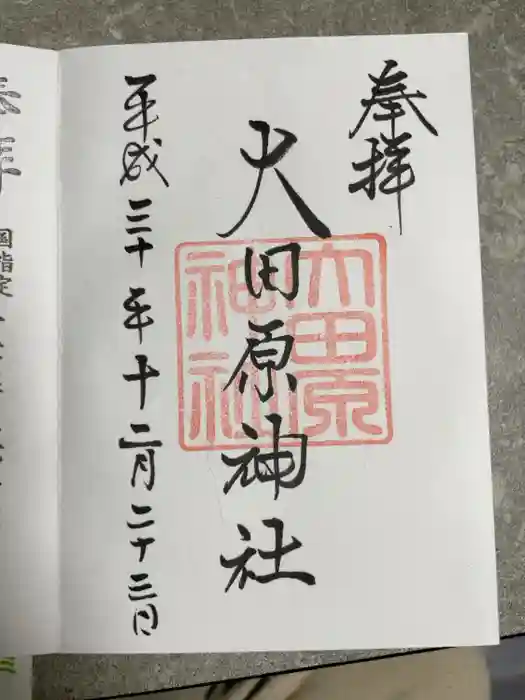 奉拝
大田原神社
大田原神社
平成三十年十二月二十三日
国指定